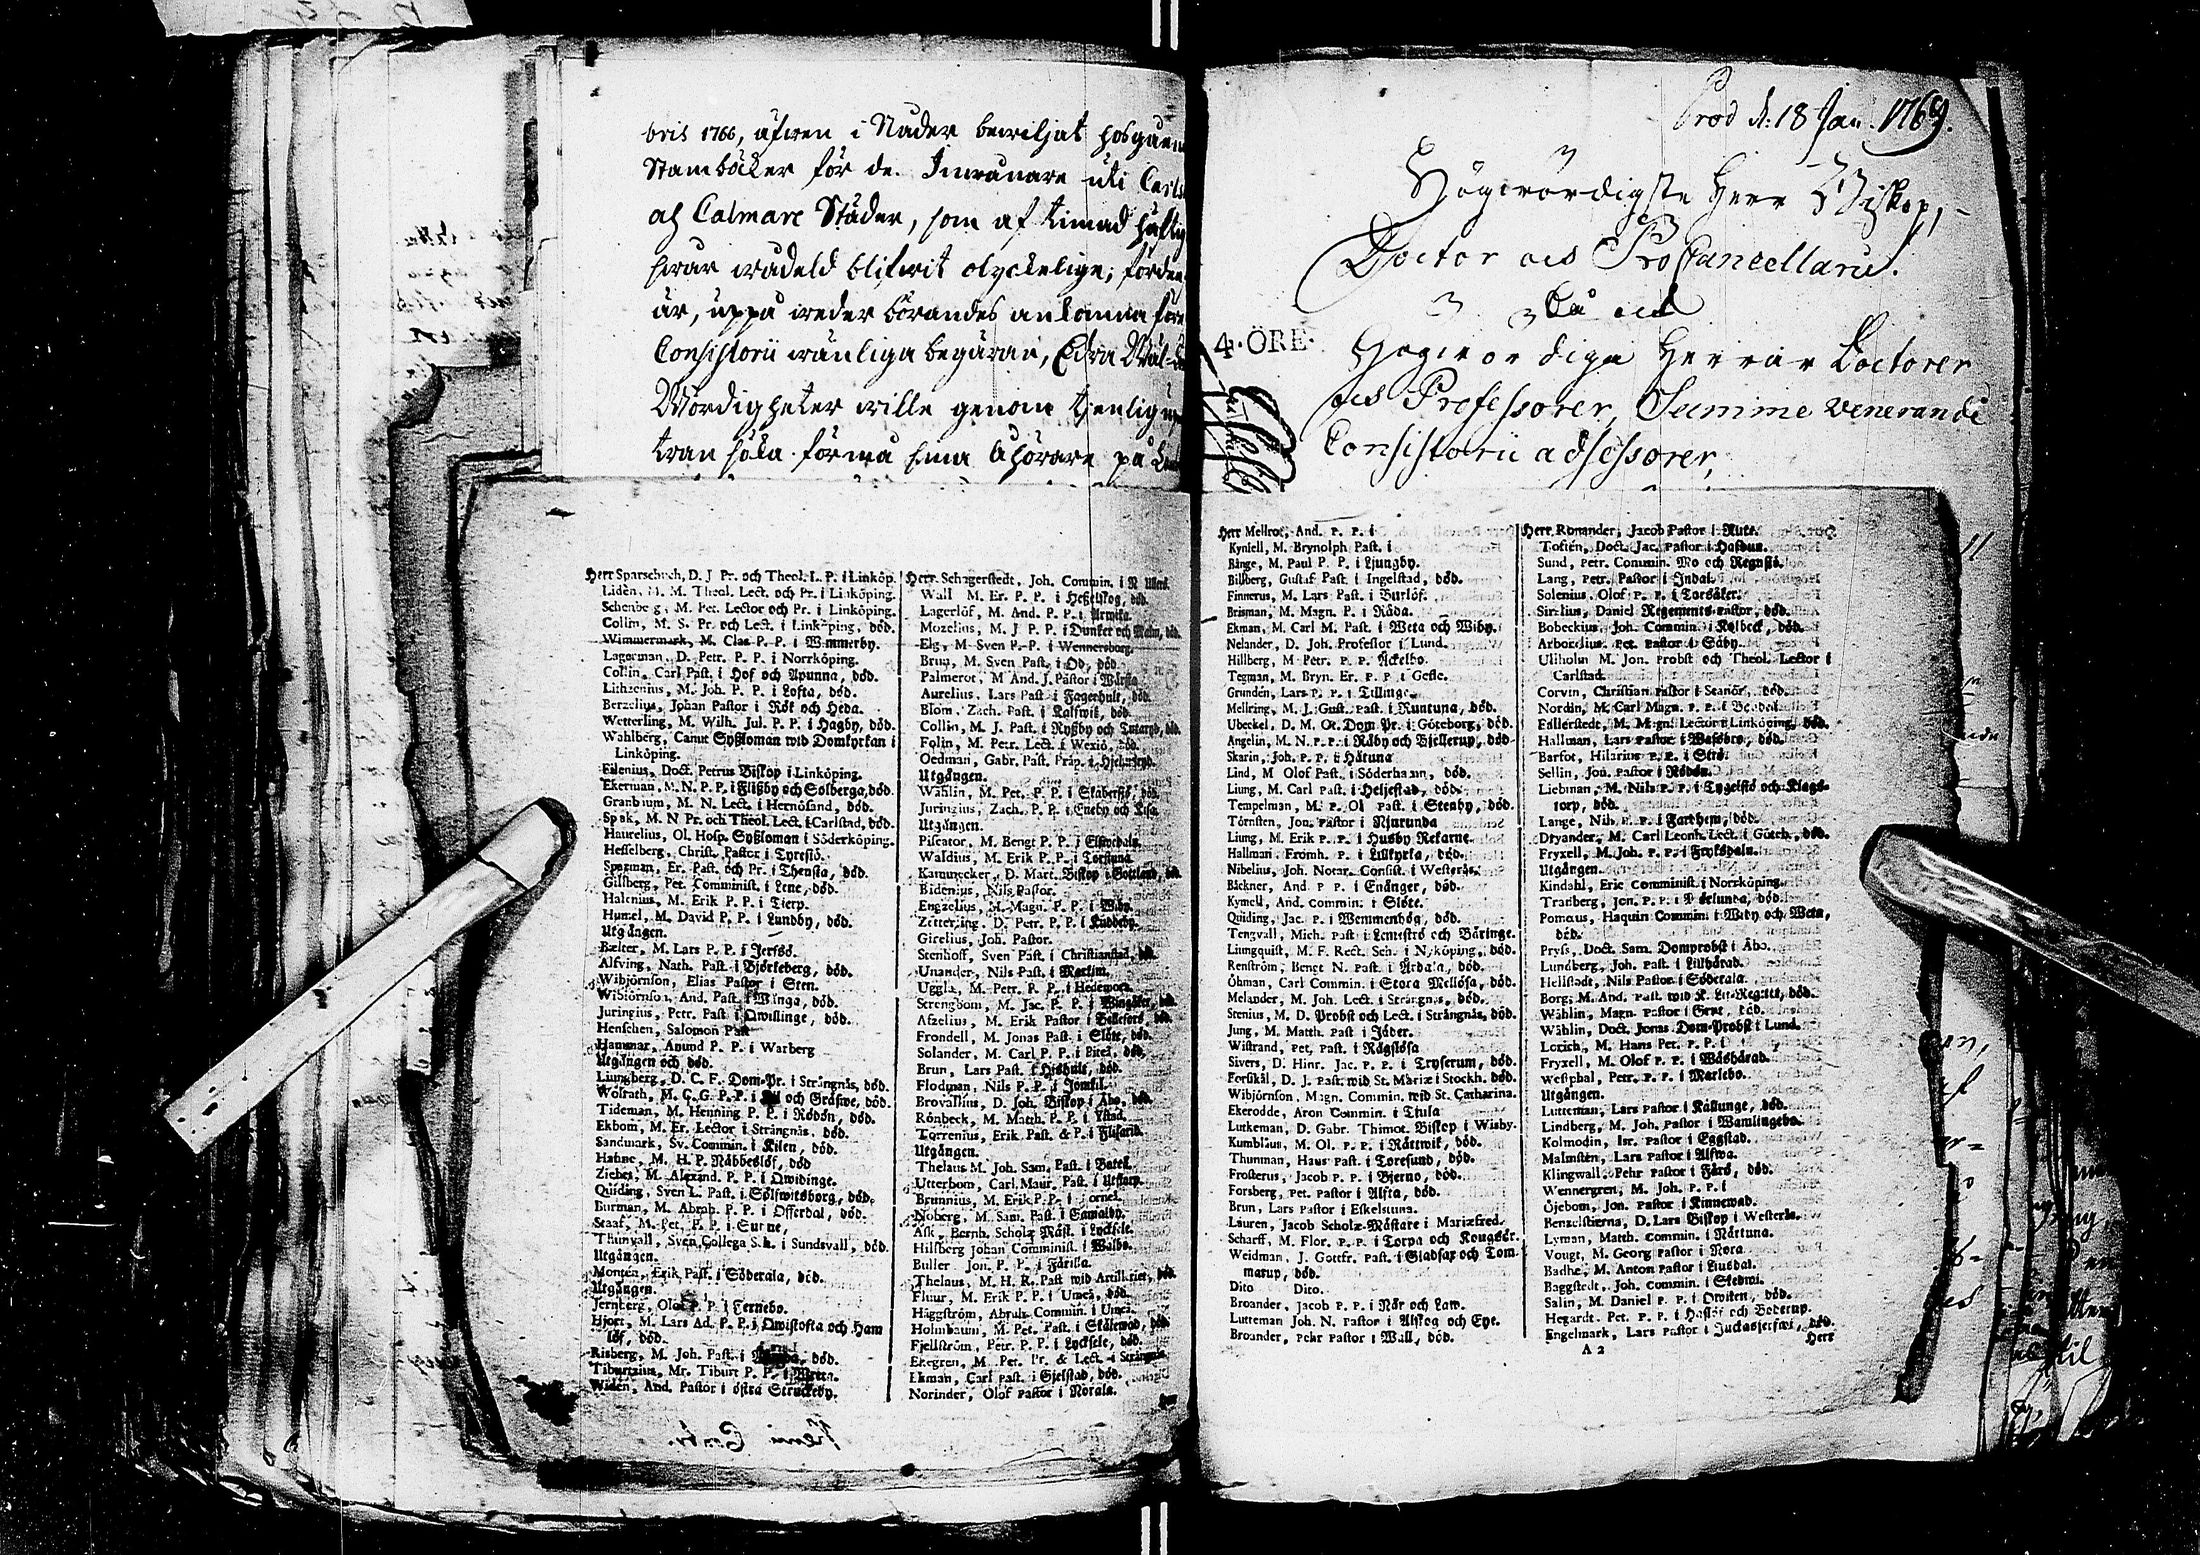 bris 1766, äfwen i Nåder bewiljat
Stamböcker för de Inwånare uti
och Calmare Städer, som af timad
swår wådeld blifwit olyckelige;
är, uppå weder börandes ankomna
Consistorii wänliga begäran, Edra
Wördigheter wille genom tjenlig
söka förmå sina Åhörare på
Herr Sparschuch, D. J Pr. och Theol. L. P. i Linköp.
Lidèn, M. Theol. Lect. och Pr. i Linköping.
Schenberg, M. Pet. Lector och Pr. i Linköping.
Collin, M. S. Pr. och Lect. i Linköping, död.
Wimmermark, M. Clas P. P. i Wimmerby.
Lagerman, D. Petr. P. P. i Norrköping.
Collin, Carl Past. i Hof och Apunna, död.
Lithzenius, M. Joh. P. P. i Lofta, död.
Berzelius, Johan Pastor i Rök och Heda.
Wetterling, M. Wilh. Jul. P. P. i Hagby, död.
Wahlberg, Canut Sysloman wid Domkyrkan i
Linköping.
Filenius, Doct. Petrus Biskop i Linköping.
Ekerman, M. N. P. P. i Flisby och Solberga, död.
Granbium, M. N. Lect. i Hernösand, död.
Spak, M. N Pr. och Theol. Lect. i Carlstad, död.
Haurelius, Ol. Hosp. Sysloman i Söderköping.
Hesselberg, Christ. Pastor i Tyresö.
Sparman, Er. Past. och Pr. i Thensta, död.
Gilsberg, Pet. Comminist. i Lene, död.
Halenius, M. Erik P. P. i Tierp.
Humel, M. David P. P. i Lundby, död.
Utgången.
Bælter, M. Lars P. P. i Jerfsö.
Alfving, Nath. Past. i Björkeberg, död.
Wibjörnson, Elias Pastor i Sten.
Wibjörnson, And. Past. i Wånga, död.
Juringius, Petr. Past. i Qwillinge, död.
Henschen, Salomon Past
Hammar, Anund P. P. i Warberg
Utgången och död.
Liungberg, D. C. F. Dom-Pr. i Strängnäs, död.
Wolrath, M. C. G. P. P. i och Gräfwe, död.
Tideman, M. Henning P. P. i Rödön, död.
Ekbom, M. Er. Lector i Strängnäs, död.
Sandmark, Sv. Commin. i Kilen, död.
Hahne, M. H. P. Näbbelöf, död
Ziebet, M. Alexand. P. P. i Qwidinge.
Quiding, Sven L. Past. i Sölfwitsborg, död.
Burman, M. Abrah. P. P. i Offerdal, död.
Staaf, M. Pet. P. P. i Surne,
Thunvall, Sven Collega Sch. i Sundsvall, död.
Utgången.
Montén, Erik Past. i Söderala, död.
Utgången.
Jernberg, Olof P. P. i Ternebo.
Hjort, M. Lars Ad. P. P. i Qwistofta och Ham
löf, död.
Risberg, M. Joh. Past. i död.
Tiburtzius, Mr. Tiburt P. P. i Wreta.
Widèn, And. Pastor i östra Struckeby.
Herr Schagerstedt, Joh. Commin. i N
Wall M. Er. P. P. i Hesselskog, död.
Lagerlöf, M. And. P. P. i Arwika.
Mozelius, M. J P. P. i Dunker och Malm, död.
Elg, M Sven P. P. i Wennersborg.
Brun, M. Sven Past. i Od, död.
Palmerot, M And. J. Pastor i
Aurelius, Lars Past. i Fagerhult, död.
Blom, Zach. Past. i Kalfwik, död
Collin, M. J. Past. i Ryssby och Tutaryd, död.
Folin, M. Petr. Lect. i Wexiö, död.
Oedman, Gabr. Past. Præp. i
Utgången.
Wåhlin, M. Pet. P. P. i Skäbersiö, död.
Juringius, Zach. P. P. i Eneby och Kisa.
Utgången.
Piscator, M. Bengt P. P. i Elfwedals.
Waldius, M. Erik P. P. i Torstuna
Kammecker, D. Mart. Biskop i Gottland, död.
Bidenius, Nils Pastor.
Engzelius, M. Magn. P. P. i Wiby.
Zetterling, D. Petr. P. P. i Kuddeby.
Girelius, Joh. Pastor.
Stenhoff, Sven Past. i Christianstad, död.
Unander, Nils Past. i Markim.
Uggla, M. Petr. P. P. i Hedemora.
Strengbom, M. Jac. P. P. i Wingåker, död.
Afzelius, M. Erik Pastor i Bellefors, död.
Frondell, M. Jonas Past. i Slöte, död.
Solander, M. Carl P. P. i Piteå, död.
Brun, Lars Past. i Hishult, död.
Flodman, Nils P. P. i Jomkil.
Brovallius, D. Joh. Biskop i Åbo, död.
Rönbeck, M. Matth. P. P. i Ystad.
Torrenius, Erik Past. & P. i Flisarid.
Utgången.
Thelaus M. Joh. Sam. Past. i Batek.
Utterbom, Carl Maur. Past. i
Brunnius, M. Erik P. P. i Torneå.
Noberg, M. Sam. Past. i Gamalby.
Ask, Bernh. Scholæ Mäst. i Lycksele.
Hilsberg Johan Comminist. i Wålbo.
Buller Jon. P. P. i Färilla.
Thelaus, M. H. R. Past wid Artilleriet, död.
Fluur, M. Erik P. P. i Umeå, död.
Häggström, Abrah. Commin. i Umeå.
Holmbaum, M. Pet. Past. i Skälewad, död.
Fjellström, Petr. P. P. i Lycksele, död.
Ekegren, M. Pet. Pr. & Lect. i Strängnäs.
Ekman, Carl Past. i Gjelstad, död.
Norinder, Olof Pastor i Norala.
Prod d. 18 Jan. 1769.
Högwördigste Herr Biskop,
Doctor och ProCancellarie.
Så ock
4. ÖRE.
Högwördige Herrar Doctorer
och Professorer, Summe venerandi
Consistorii adsessorer,
Herr Mellrot, And. P. P. i
Kyntell, M. Brynolph Past. i
Bånge, M. Paul P. P. i Ljungby.
Billberg, Gustaf Past. i Ingelstad, död.
Finnerus, M. Lars Past. i Burlöf.
Brisman, M. Magn. P. i Råda.
Ekman, M. Carl M. Past. i Weta och Wiby.
Nelander, D. Joh. Professor i Lund.
Hillberg, M Petr. P. P. Åckelbo.
Tegman, M. Bryn. Er. P. P i Gesle.
Grundén, Lars P. P. i Tillinge.
Mellring, M. J. Gust. Past. i Runtuna, död.
Ubeckel, D. M. Ol. Dom Pr. i Göteborg, död.
Angelin, M. N. P. P. i Råby och Bjellerup, död.
Skarin, Joh. P. P. i Håtuna
Lind, M Olof Past. i Söderhamn, död.
Liung, M. Carl Past. i Heljestad, död.
Tempelman, M. P. Ol Past. i Stenby, död.
Törnsten, Jon. Pastor i Njurunda
Liung, M. Erik P. P. i Husby Rekarne.
Hallman Fromh. P. i Lillkyrka, död.
Nibelius, Joh. Notar. Consist. i Westerås.
Bäckner, And P P. i Enånger, död.
Kymell, And. Commin. i Slöte.
Quiding, Jac. P. i Wemmenhög, död.
Tengvall, Mich. Past i Lemeströ och Båringe.
Liungquist, M. F. Rect. Sch. i Nyköping, död.
Renström, Bengt N. Past. i Årdala, död.
Öhman, Carl Commin. i Stora Mellösa, död.
Melander, M. Joh. Lect. i Strängnäs, död.
Stenius, M. D. Probst och Lect. i Strängnäs, död.
Jung, M. Matth. Past i Jäder.
Wistrand, Pet, Past. i Rågslösa
Sivers, D. Hinr. Jac. P. P. i Tryserum, död.
Forskål, D. J. Past. wid St. Mariæ i Stockh. död.
Wibjörnson, Magn. Commin. wid St. Catharina.
Ekerodde, Aron Commin. i Thula
Lutkeman, D. Gabr. Thimot. Biskop i Wisby.
Kumblæus, M. Ol. P. P. i Rättwik, död.
Thunman, Hans Past. i Toresund, död.
Frosterus, Jacob P. P. i Bjerno, död.
Forsberg, Pet. Pastor i Alfta, död.
Brun, Lars Pastor i Eskelstuna.
Lauren, Jacob Scholæ-Mästare i Mariæfred.
Scharff, M. Flor. P. P. i Torpa och Kougsör.
Weidman, J. Gottfr. Past. i Gladsax och Tom-
marup, död.
Dito Dito.
Broander, Jacob P. P. i När och Law.
Lutteman Joh. N. Pastor i Alskog och Eye.
Broander, Pehr Pastor i Wall, död.
Herr Ronander, Jacob Pastor i Rute.
Toftén, Doct. Jac. Pastor i Hafdum.
Sund, Petr. Commin. Mo och Regnsiö.
Lang, Petr. Pastor i Indal.
Solenius, Olof P. P. i Torsåker.
Sirelius, Daniel Regements Pastor, död.
Bobeckius, Joh. Commin. i Kolbeck, död.
Arborelius. Pet. Pastor i Säby.
Ullholm M. Jon. Probst och Theol. Lector i
Carlstad.
Corvin, Christian Pastor i Skanör, död.
Nordin, M. Carl Magn. P. P. i
Fallerstedt, M. Magn. Lector i Linköping, död.
Hallman, Lars Pastor i Wassbro, död.
Barfot, Hilarius P. P. i Strö.
Sellin, Jon. Pastor i Rödön.
Liebman, M. Nils P. P. i Tygelsiö och Klags-
torp, död.
Lange, Nils P. P. i Fardhem, död.
Dryander, M. Carl Leonh. Lect. i Göteb., död.
Fryxell, M. Joh. P. P. i Fryksdaln.
Utgången.
Kindahl, Eric Comminist. i Norrköping.
Tranberg, Jon. P. P. i död.
Pomœus, Haquin Commin. i Wiby och Weta,
död.
Pryss, Doct. Sam. Domprobst i Åbo.
Lundberg, Joh. Past. i Lillhärad.
Hellstadt, Nils Pastor i Söderala.
Borg, M. And. Past. wid K. Lif-Regitt, död.
Wåhlin, Magn. Pastor i död.
Wåhlin, Doct. Jonas Dom-Probst i Lund.
Lorich, M. Hans Pet. P. P. i
Fryxell, M. Olof P. P. i Wåshärad.
Westphal, Petr. P. P. i Marlebo.
Utgången.
Lutteman, Lars Pastor i Källunge, död.
Lindberg, M. Joh. Pastor i Wamlingebo.
Kolmodin, Isr. Pastor i Eggstad.
Malmstén, Lars Pastor i Alfwa.
Klingwall, Pehr Pastor i Fårö, död.
Wennergren, M. Joh. P. P. i
Öjebom, Jon. Pastor i Kinnewad.
Benzelstierna, D. Lars Biskop i Westerås.
Lyman, Matth. Commin. i Närtuna.
Vougt, M. Georg Pastor i Nora
Badhe, M. Anton Pastor i Liusdal.
Baggstedt, Joh. Commin. i Skedwi.
Salin, M. Daniel P. P. i Qwiken, död.
Hegardt, Pet. P. P. i Hasslöf och Boderup.
Engelmark, Lars Pastor i Juckasjerfwi, död.
A 2
Herr